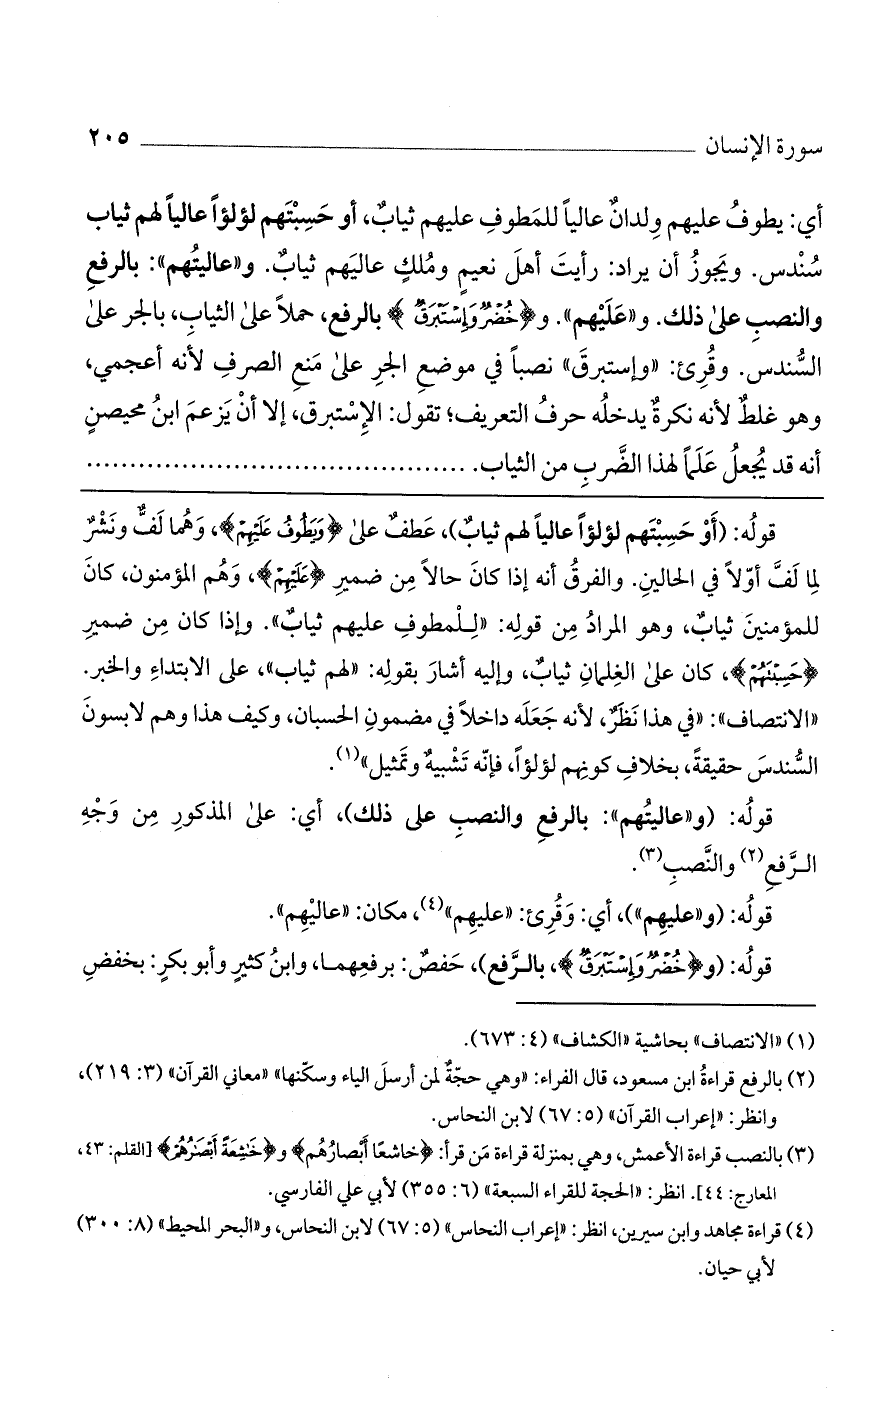 سورة الإنسان ٢٠٥
أي: يطوفُ عليهم وِلدانٌ عالياً للمَطوفِ عليهم ثيابٌ، أو حَسِبْتَهم لؤلؤاً عالياً لهم ثياب
سُنْدس. ويَجوزُ أن يراد: رأيتَ أهلَ نعيمٍ ومُلكٍ عاليَهم ثيابٌ. و«عاليتُهم»: بالرفعِ
والنصبِ علىٰ ذلك. و«عَلَيْهم». و﴿خُضْرٌ وَإِسْتَبْرَقٌ﴾ بالرفع، حملاً علىٰ الثيابِ، بالجر علىٰ
السُّندس. وقُرِئ: «وإستبرقَ» نصباً في موضعِ الجرِ علىٰ مَنعِ الصرفِ لأنه أعجمي،
وهو غلطٌ لأنه نكرةٌ يدخلُه حرفُ التعريف؛ تقول: الإِسْتبرق، إلا أنْ يَزعمَ ابنُ محيصنٍ
أنه قد يُجعلُ عَلَماً لهذا الضَّربِ من الثياب. ............................................
قولُه: (أَوْ حَسِبْتَهم لؤلؤاً عالياً لهم ثيابٌ)، عَطفٌ علىٰ ﴿وَيَطُوفُ عَلَيْهِمْ﴾، وَهُما لَفٌّ ونَشْرٌ
لِما لَفَّ أوّلاً في الحالينِ. والفرقُ أنه إذا كانَ حالاً مِن ضميرِ ﴿عَلَيْهِمْ﴾، وَهُم المؤمنون، كانَ
للمؤمنينَ ثيابٌ، وهو المرادُ مِن قولِه: «لِلْمطوفِ عليهم ثيابٌ». وإذا كان مِن ضميرِ
﴿حَسِبْتَهُمْ﴾، كان علىٰ الغِلمانِ ثيابٌ، وإليه أشارَ بقولِه: «لهم ثياب»، على الابتداءِ والخبر.
«الانتصاف»: «في هذا نَظَرٌ، لأنه جَعَلَه داخلاً في مضمونِ الحسبان، وكيف هذا وهم لابسونَ
السُّندسَ حقيقةً، بخلافِ كونِهم لؤلؤاً، فإنّه تَشْبيهٌ وتمَثيل»(١).
قولُه: (و«عاليتُهم»: بالرفعِ والنصبِ على ذلك)، أي: علىٰ المذكورِ مِن وَجْهِ
الرَّفعِ(٢) والنَّصبِ(٣).
قولُه: (و«عليهِم»)، أي: وَقُرِئ: «عليهِم»(٤)، مكان: «عاليْهِم».
قولُه: (و﴿خُضْرٌ وَإِسْتَبْرَقٌ﴾، بالرَّفع)، حَفصٌ: برفعِهما، وابنُ كثيرٍ وأبو بكرٍ: بخفضِ
(١) «الانتصاف» بحاشية «الكشاف» (٤: ٦٧٣).
(٢) بالرفع قراءةُ ابن مسعود، قال الفراء: «وهي حجّةٌ لمن أرسلَ الياء وسكّنها» «معاني القرآن» (٣: ٢١٩)،
وانظر: «إعراب القرآن» (٥: ٦٧) لابن النحاس.
(٣) بالنصب قراءة الأعمش، وهي بمنزلة قراءة مَن قرأ: ﴿خاشعًا أَبْصارُهُم﴾ و﴿خَٰشِعَةً أَبْصَٰرُهُمْ﴾ [القلم: ٤٣،
المعارج: ٤٤]. انظر: «الحجة للقراء السبعة» (٦: ٣٥٥) لأبي علي الفارسي.
(٤) قراءة مجاهد وابن سيرين، انظر: «إعراب النحاس» (٥: ٦٧) لابن النحاس، و«البحر المحيط» (٨: ٣٠٠)
لأبي حيان.